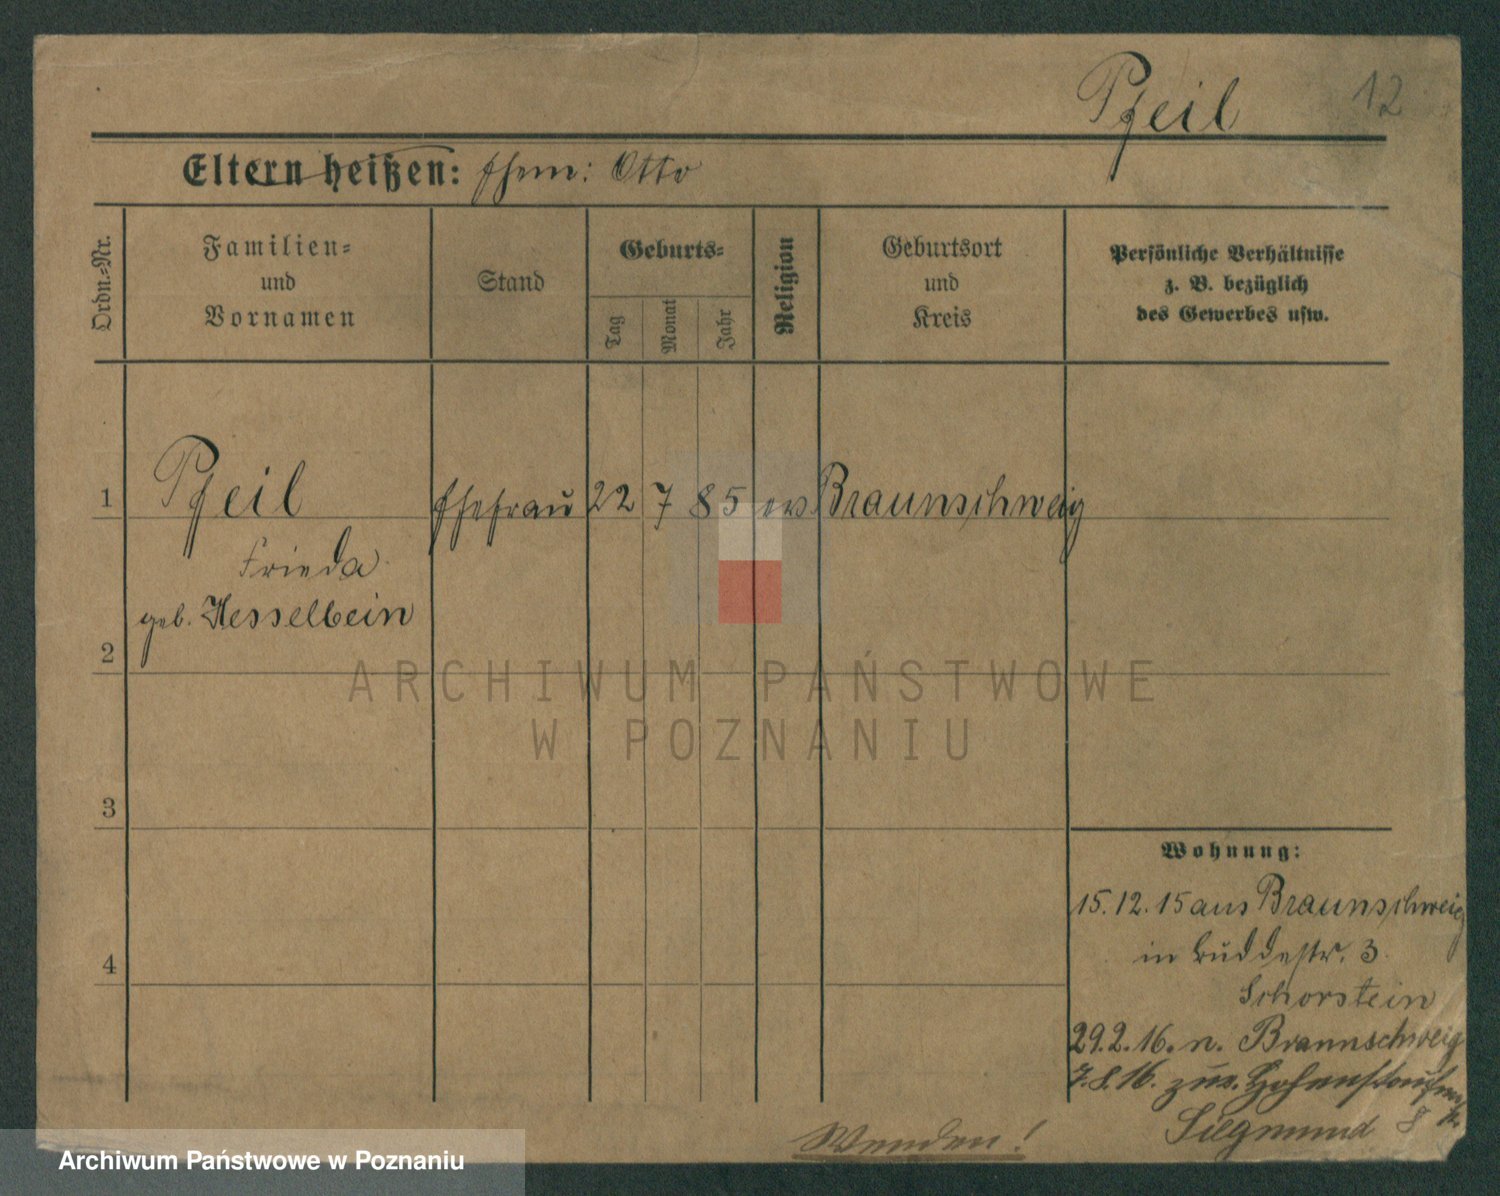 Pfeil 12
Eltern heißen: Ehem: Otto
Ordn.-Nr.
Familien-
und
Vornamen
Stand
Geburts-
Tag
Monat
Jahr
Religion
Geburtsort
und
Kreis
Persönliche Verhältnisse
z. B. bezüglich
des Gewerbes usw.
1 Pfeil Ehefrau 22 7 85 ev Braunschweig
Frieda
geb. Hesselbein
2
3
4
ARCHIWUM PAŃSTWOWE
W POZNANIU
Wohnung:
15.12.15 aus Braunschweig
in Buddestr. 3
Schorstein
29.2.16. n. Braunschweig
7.8.16. zur. Hohenstaufen
Siegmund
Wenden!
Archiwum Państwowe w Poznaniu